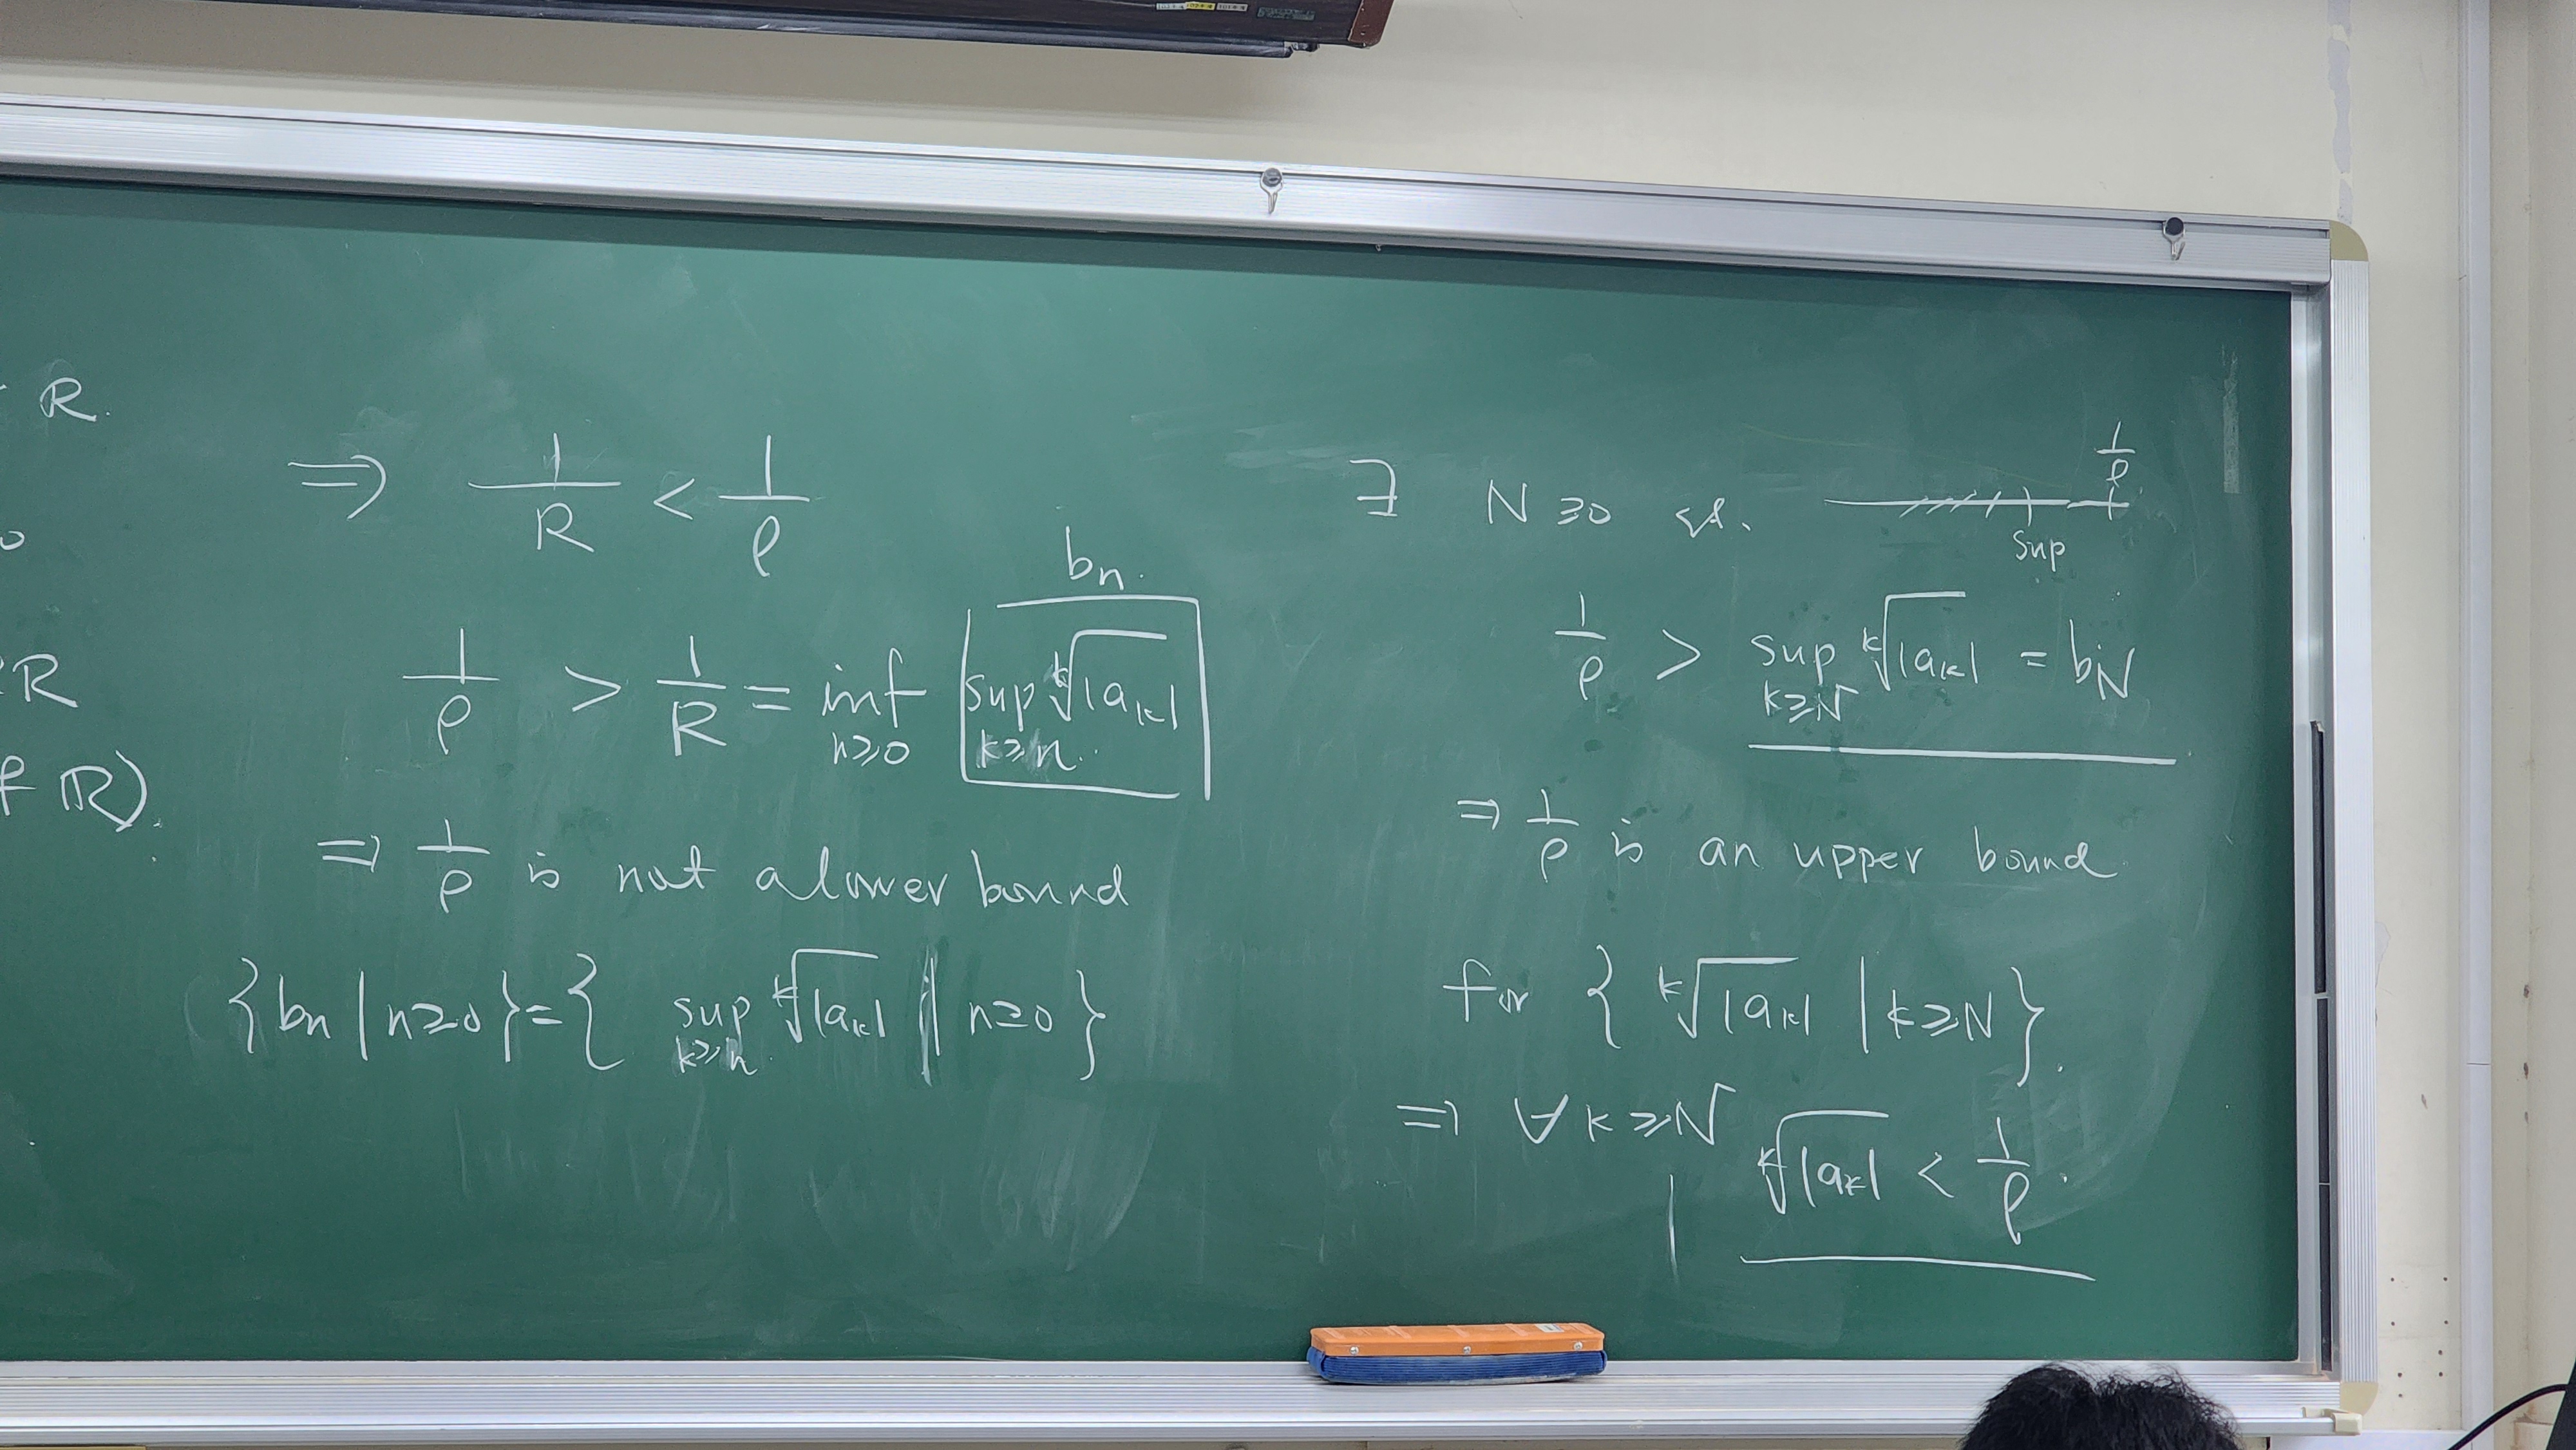 R.
R
R).
⇒ 1/R < 1/ρ
bn.
1/ρ > 1/R = inf n≥0 sup k≥n. ᵏ√|ak|
⇒ 1/ρ is not a lower bound
{bn | n≥0} = { sup k≥n. ᵏ√|ak| | n≥0 }
∃ N≥0 st.
1/ρ
sup
1/ρ > sup k≥N ᵏ√|ak| = bN
⇒ 1/ρ is an upper bound
for { ᵏ√|ak| | k≥N }.
⇒ ∀ k≥N
ᵏ√|ak| < 1/ρ.